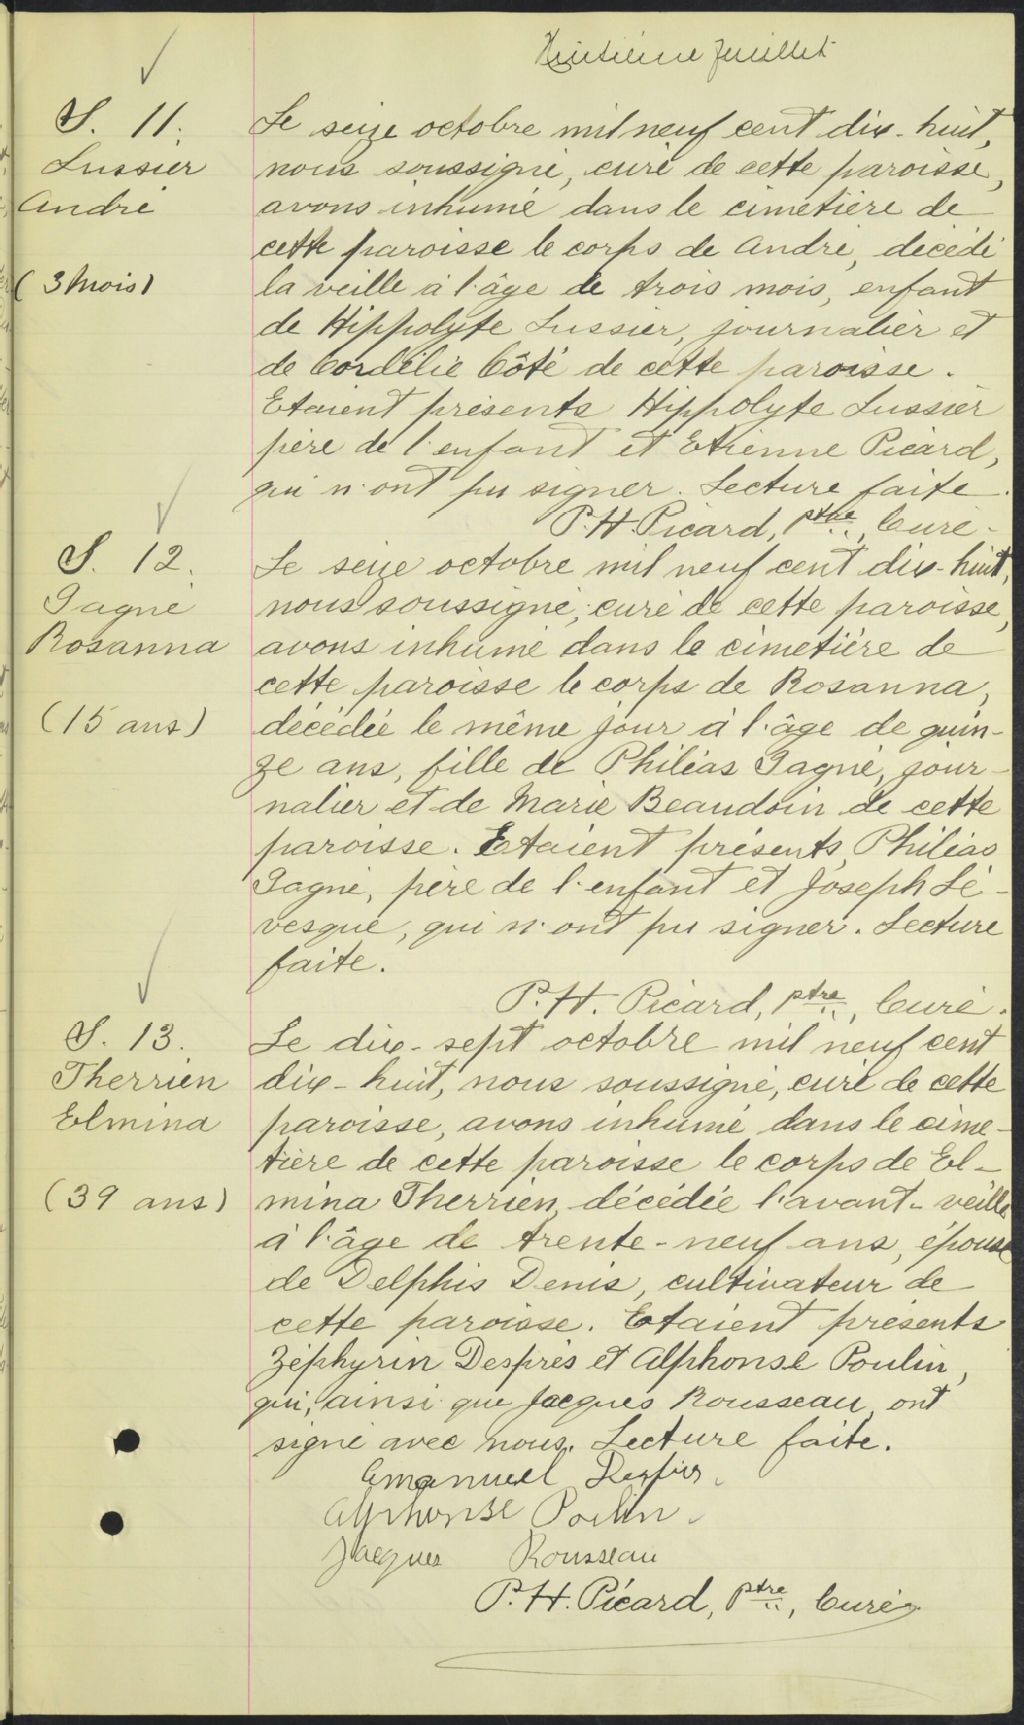 Huitième feuillet
S. 11.
Lussier
André
(3 mois)
Le seize octobre mil neuf cent dix-huit,
nous soussigné, curé de cette paroisse,
avons inhumé dans le cimetière de
cette paroisse le corps de André, décédé
la veille à l'âge de trois mois, enfant
de Hippolyte Lussier, journalier et
de Cordélie Côté de cette paroisse.
Etaient présents Hippolyte Lussier
père de l'enfant et Etienne Picard,
qui n'ont pu signer. Lecture faite.
P.H. Picard, ptre, Curé.
S. 12.
Gagné
Rosanna
(15 ans)
Le seize octobre mil neuf cent dix-huit,
nous soussigné, curé de cette paroisse,
avons inhumé dans le cimetière de
cette paroisse le corps de Rosanna,
décédée le même jour à l'âge de quin-
ze ans, fille de Philéas Gagné, jour-
nalier et de Marie Beaudoin de cette
paroisse. Etaient présents, Philéas
Gagné, père de l'enfant et Joseph Lé-
vesque, qui n'ont pu signer. Lecture
faite.
P.H. Picard, ptre, Curé.
S. 13.
Therrien
Elmina
(39 ans)
Le dix-sept octobre mil neuf cent
dix-huit, nous soussigné, curé de cette
paroisse, avons inhumé dans le cime-
tière de cette paroisse le corps de El-
mina Therrien, décédée l'avant-veille
à l'âge de trente-neuf ans, épouse
de Delphis Denis, cultivateur de
cette paroisse. Etaient présents
Zéphyrin Desprès et Alphonse Poulin,
qui, ainsi que Jacques Rousseau, ont
signé avec nous. Lecture faite.
Emanuel
Alphonse Poulin.
Jacques Rousseau
P.H. Picard, Ptre, Curé